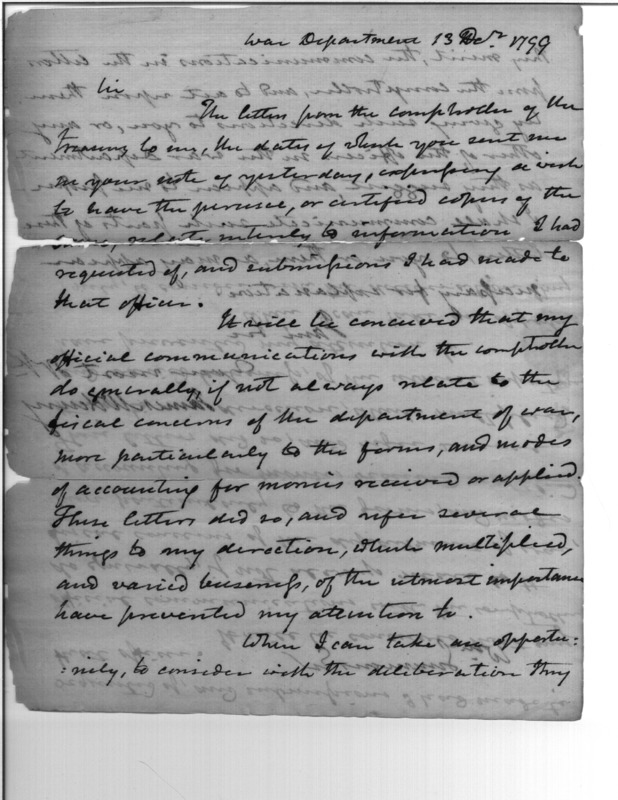 War Department 13 Decr. 1799
Sir
The letters from the comptroller of the
Treasury to me, the dates of which you sent me
in your note of yesterday, expressing a wish
to have the perusal, or certified copies of the
same, relate entirely to information I had
requested of, and submissions I had made to
that officer.
It will be conceived that my
official communications with the comptroller
do generally, if not always relate to the
fiscal concerns of the department of war,
more particularly to the forms, and modes
of accounting for monies received or applied.
These letters did so, and refer several
things to my direction, which multiplied,
and varied business, of the utmost importance
have prevented my attention to.
When I can take an opportu:
:nity, to consider with the deliberation they